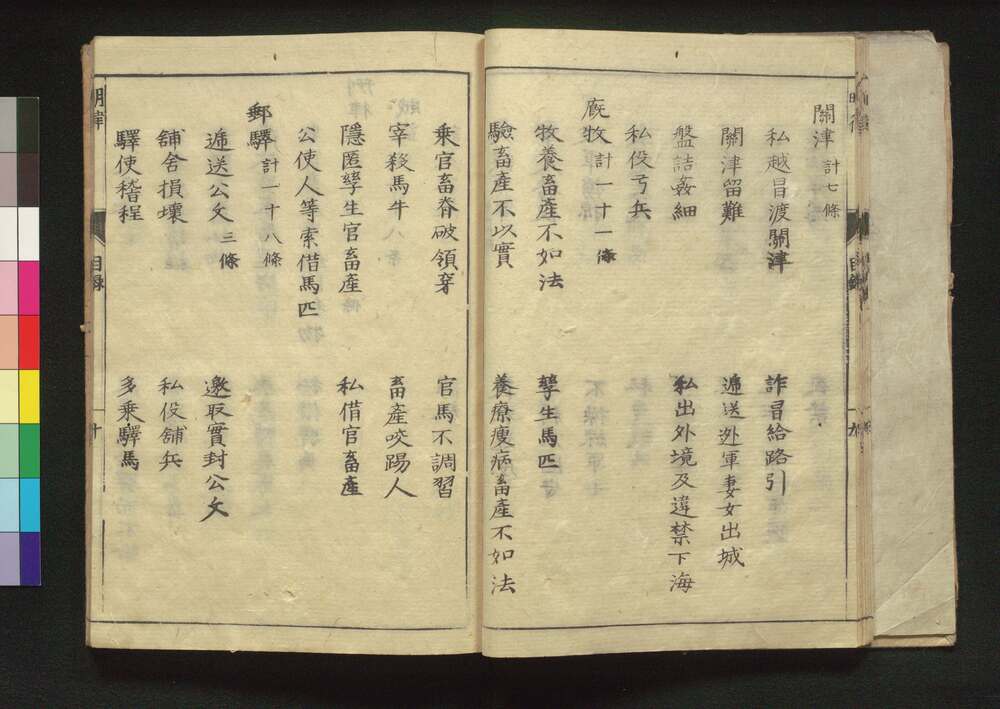 關津計七條
私越冒渡關津
詐冒給路引
關津留難
逓送迯軍妻女出城
盤詰姦細
私出外境及違禁下海
私役弓兵
廐牧計一十一條
牧養畜產不如法
孳生馬匹
驗畜產不以實
養療瘦病畜產不如法
乘官畜脊破領穿
官馬不調習
宰殺馬牛
畜產咬踢人
隱匿孳生官畜產
私借官畜產
公使人等索借馬匹
郵驛計一十八條
逓送公文三條
邀取實封公文
舖舍損壞
私役舖兵
驛使稽程
多乘驛馬
明律
目錄
十
目錄
九